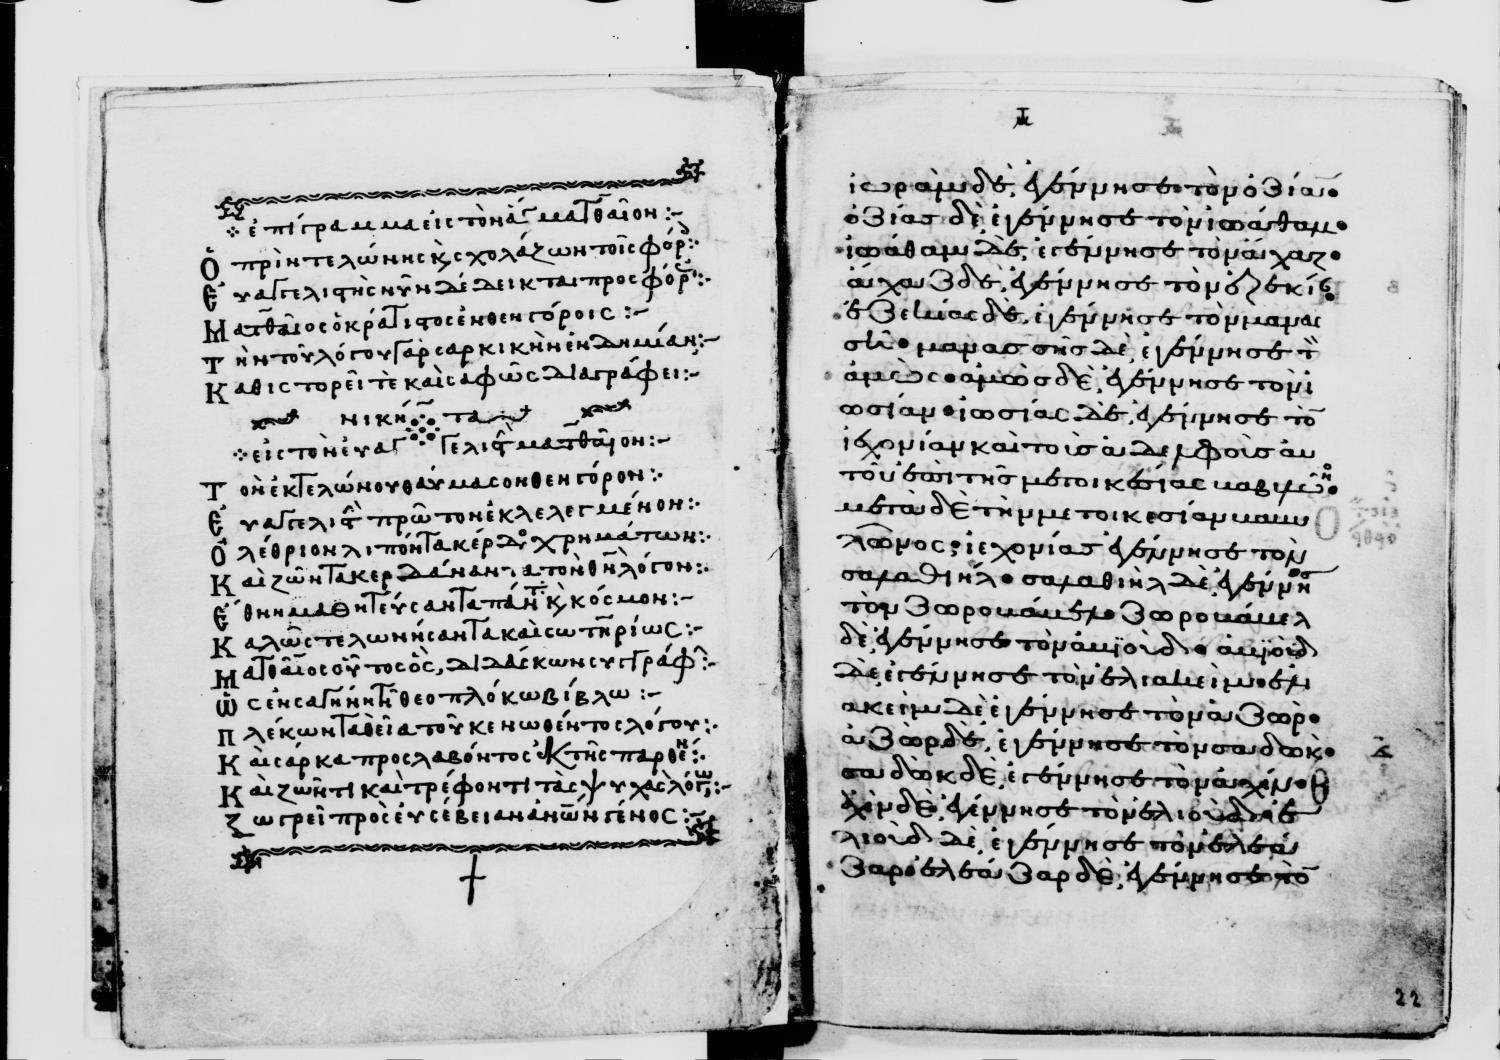 ἐπίγραμμα εἰς τὸν ἅγ ματθαῖον :~
Ὁ πρὶν τελώνης κ σχολάζων τοῖς φόρ :·
Εὐαγγελιστὴς νῦν δέδεικται προσφόρ :·
Ματθαῖος ὁ κράτιστος ἐν θεηγόροις :~
Τὴν τοῦ λόγου γὰρ σαρκικὴν ἐνδημίαν :~
Καθιστορεῖ τὲ καὶ σαφῶς διαγράφει :~
νικήτα
εἰς τὸν εὐαγγελιστ ματθαῖον :~
Τὸν ἐκ τελώνου θαύμασον θεηγόρον :·
Εὐαγγελιστ πρῶτον ἐκλελεγμένον :·
Ὀλέθριον λιπόντα κέρδο χρημάτων :·
Καὶ ζῶντα κερδάναντα τὸν θν λόγον :·
Ἔθνη μαθητεύσαντα πάντ κ κόσμον :~
Καλῶς τελωνήσαντα καὶ σωτηρίως :~
Ματθαῖος οὗτος ὃς, διδάσκων συγγράφ :~
Ὡς ἐν σαγήνη τῆ θεοπλόκω βίβλω :~
Πλέκων τὰ θεῖα τοῦ κενωθέντος λόγου :·
Καὶ σάρκα προσλαβόντος ἐκ τῆς παρθέν :·
Καὶ ζωντι καὶ τρέφοντι τὰς ψυχὰς λόγω :~
Ζωγρεῖ πρὸς εὐσέβειαν ἀνων γένος :~
ἰωρὰμ δὲ, ἐγέννησε τὸν ὀζίαν·
ὀζίας δὲ, ἐγέννησε τὸν ἰωάθαμ·
ἰωάθαμ δὲ, ἐγέννησε τὸν ἄχαζ·
ἄχαζ δὲ, ἐγέννησε τὸν ἐζεκίαν·
ἐζεκίας δὲ, ἐγέννησε τὸν μανασ
σῆν· μανασσῆς δὲ, ἐγέννησε τὸν
ἀμώς· ἀμὼς δὲ, ἐγέννησε τὸν ἰ
ωσίαν· ἰωσίας δὲ, ἐγέννησε τὸν
ἰεχονίαν καὶ τοὺς ἀδελφοὺς αὐ
τοῦ ἐπὶ τῆς μετοικεσίας βαβυλῶνο·
μετὰ δὲ τὴν μετοικεσίαν βαβυ
λῶνος, ἰεχονίας ἐγέννησε τὸν
σαλαθιήλ· σαλαθιὴλ δὲ, ἐγέννησε
τὸν ζοροβάβελ· ζοροβάβελ
δὲ, ἐγέννησε τὸν ἀβϊούδ· ἀβϊοὺδ
δὲ, ἐγέννησε τὸν ἐλιακείμ· ἐλι
ακεὶμ δὲ ἐγέννησε τὸν ἀζώρ·
ἀζὼρ δὲ, ἐγέννησε τὸν σαδώκ·
σαδὼκ δὲ, ἐγέννησε τὸν ἀχίν· ἀ
χὶν δὲ, ἐγέννησε τὸν ἐλιούδ· ἐ
λιοὺδ δὲ, ἐγέννησε τὸν ἐλεά
ζαρ· ἐλεάζαρ δὲ, ἐγέννησε τὸν
22